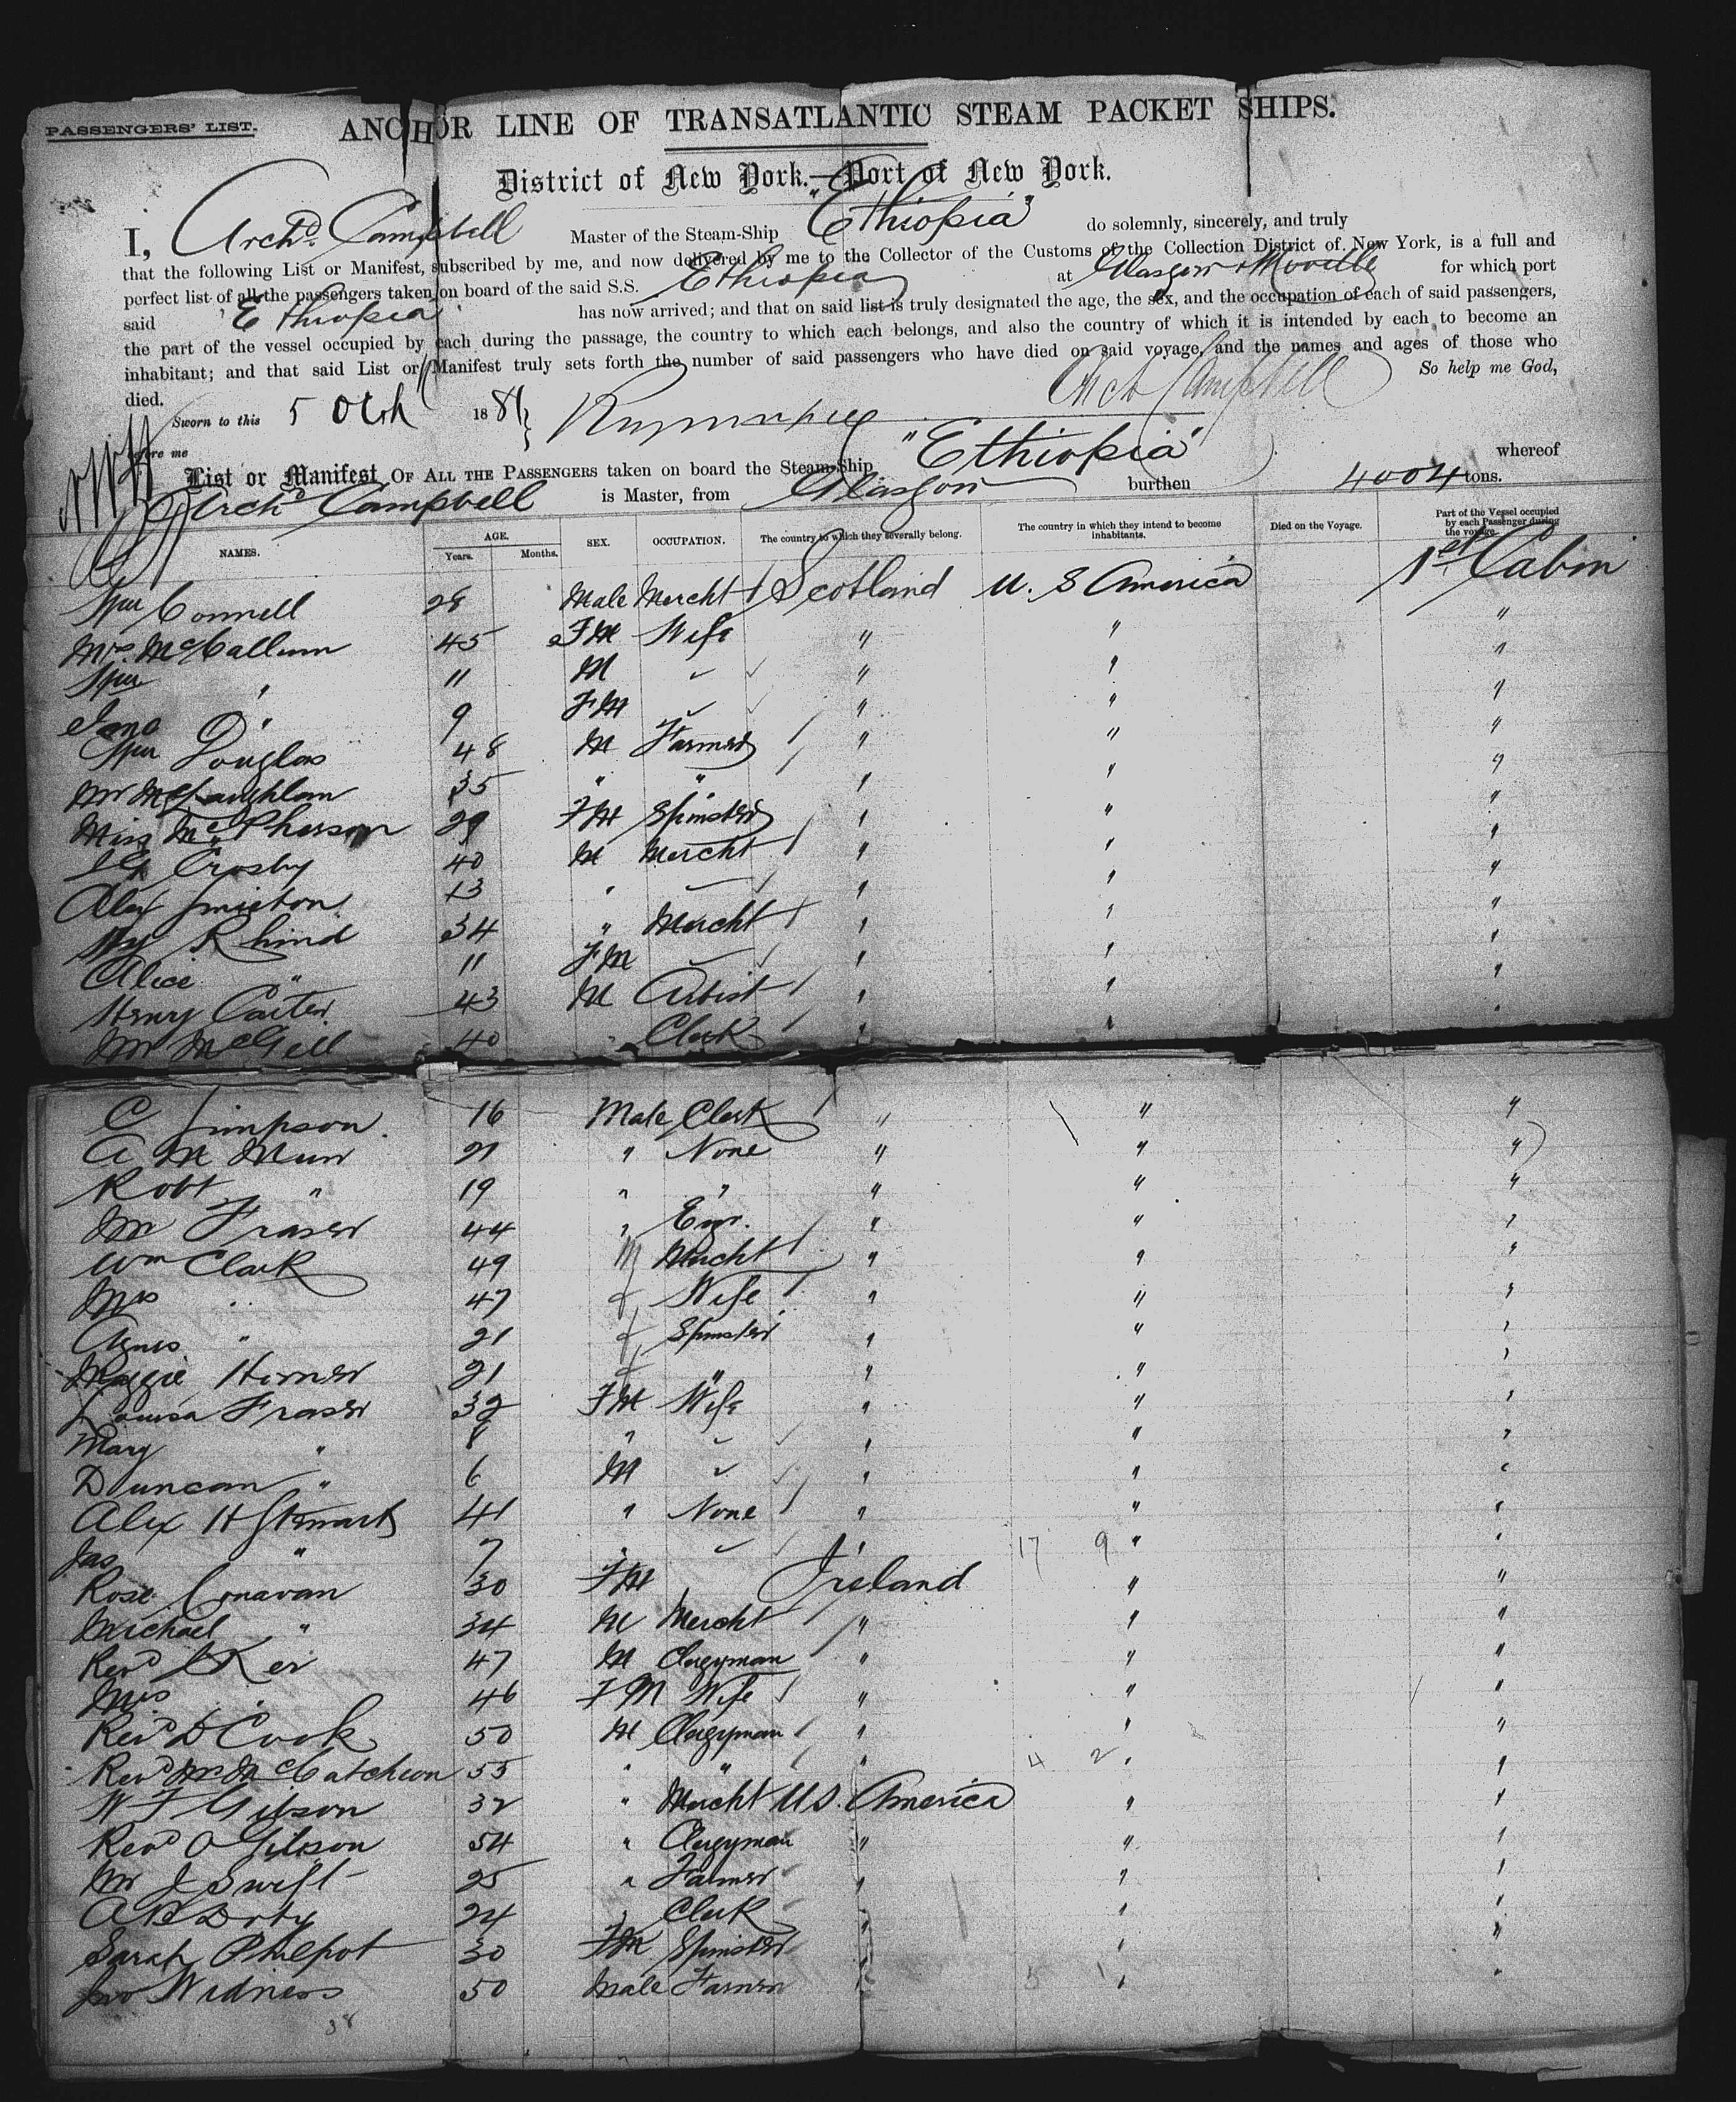 PASSENGERS' LIST.
ANCHOR LINE OF TRANSATLANTIC STEAM PACKET SHIPS.
District of New York.—Port of New York.
I, Archd. Campbell Master of the Steam-Ship "Ethiopia" do solemnly, sincerely, and truly
that the following List or Manifest, subscribed by me, and now delivered by me to the Collector of the Customs of the Collection District of New York, is a full and
perfect list of all the passengers taken on board of the said S.S. Ethiopia at Glasgow & Moville for which port
said Ethiopia has now arrived; and that on said list is truly designated the age, the sex, and the occupation of each of said passengers,
the part of the vessel occupied by each during the passage, the country to which each belongs, and also the country of which it is intended by each to become an
inhabitant; and that said List or Manifest truly sets forth the number of said passengers who have died on said voyage, and the names and ages of those who
died. So help me God,
Sworn to this 5 Octh 1881 Arch Campbell
before me
List or Manifest OF ALL THE PASSENGERS taken on board the Steam-Ship "Ethiopia" whereof
Archd Campbell is Master, from Glasgow burthen 4004 tons.
NAMES. AGE. Years. Months. SEX. OCCUPATION. The country to which they severally belong. The country in which they intend to become inhabitants. Died on the Voyage. Part of the Vessel occupied by each Passenger during the voyage.
Wm Connell 28 Male Mercht Scotland U. S America 1st Cabin
Mrs. McCallum 45 FM Wife " " "
Wm " 11 M " " "
Jane " 9 FM " " "
Wm Douglas 48 M Farmer " " "
Mr McLaughlan 35 " " " " "
Miss McPherson 29 FM Spinster " " "
Crosby 40 M Mercht " " "
Alex Smieton 13 " " " "
Wm Rhind 34 " Mercht " " "
Alice " 11 FM " " "
Henry Carter 43 M Artist " " "
Mr McGill 40 " Clerk " " "
C Simpson 16 Male Clerk " " "
A M Muir 21 " None " " "
Robt " 19 " " " " "
Mr Fraser 44 " Engr. " " "
Wm Clark 49 M Mercht " " "
Mrs " 47 f Wife " " "
Agnes " 21 f Spinster " " "
Maggie Horner 21 f " " " "
Louisa Fraser 32 FM Wife " " "
Mary " 8 " " " "
Duncan " 6 M " " "
Alex H Stewart 41 " None " " "
Jas " 7 " " 17 9 " "
Rose Conavan 30 FM Ireland " "
Michael " 34 M Mercht " " "
Revd J Ker 47 M Clergyman " " "
Mrs " 46 FM Wife " " "
Revd D Cook 50 M Clergyman " " "
Revd Mr McCatcheon 55 " " " 4 2 " "
W F Gibson 32 " Mercht U.S. America " "
Revd O Gibson 54 " Clergyman " " "
Mr J Swift 25 " Farmer " " "
A B Doty 24 " Clerk " " "
Sarah Philpot 30 FM Spinster " " "
Jno Widness 50 Male Farmer " 5 1 " "
38